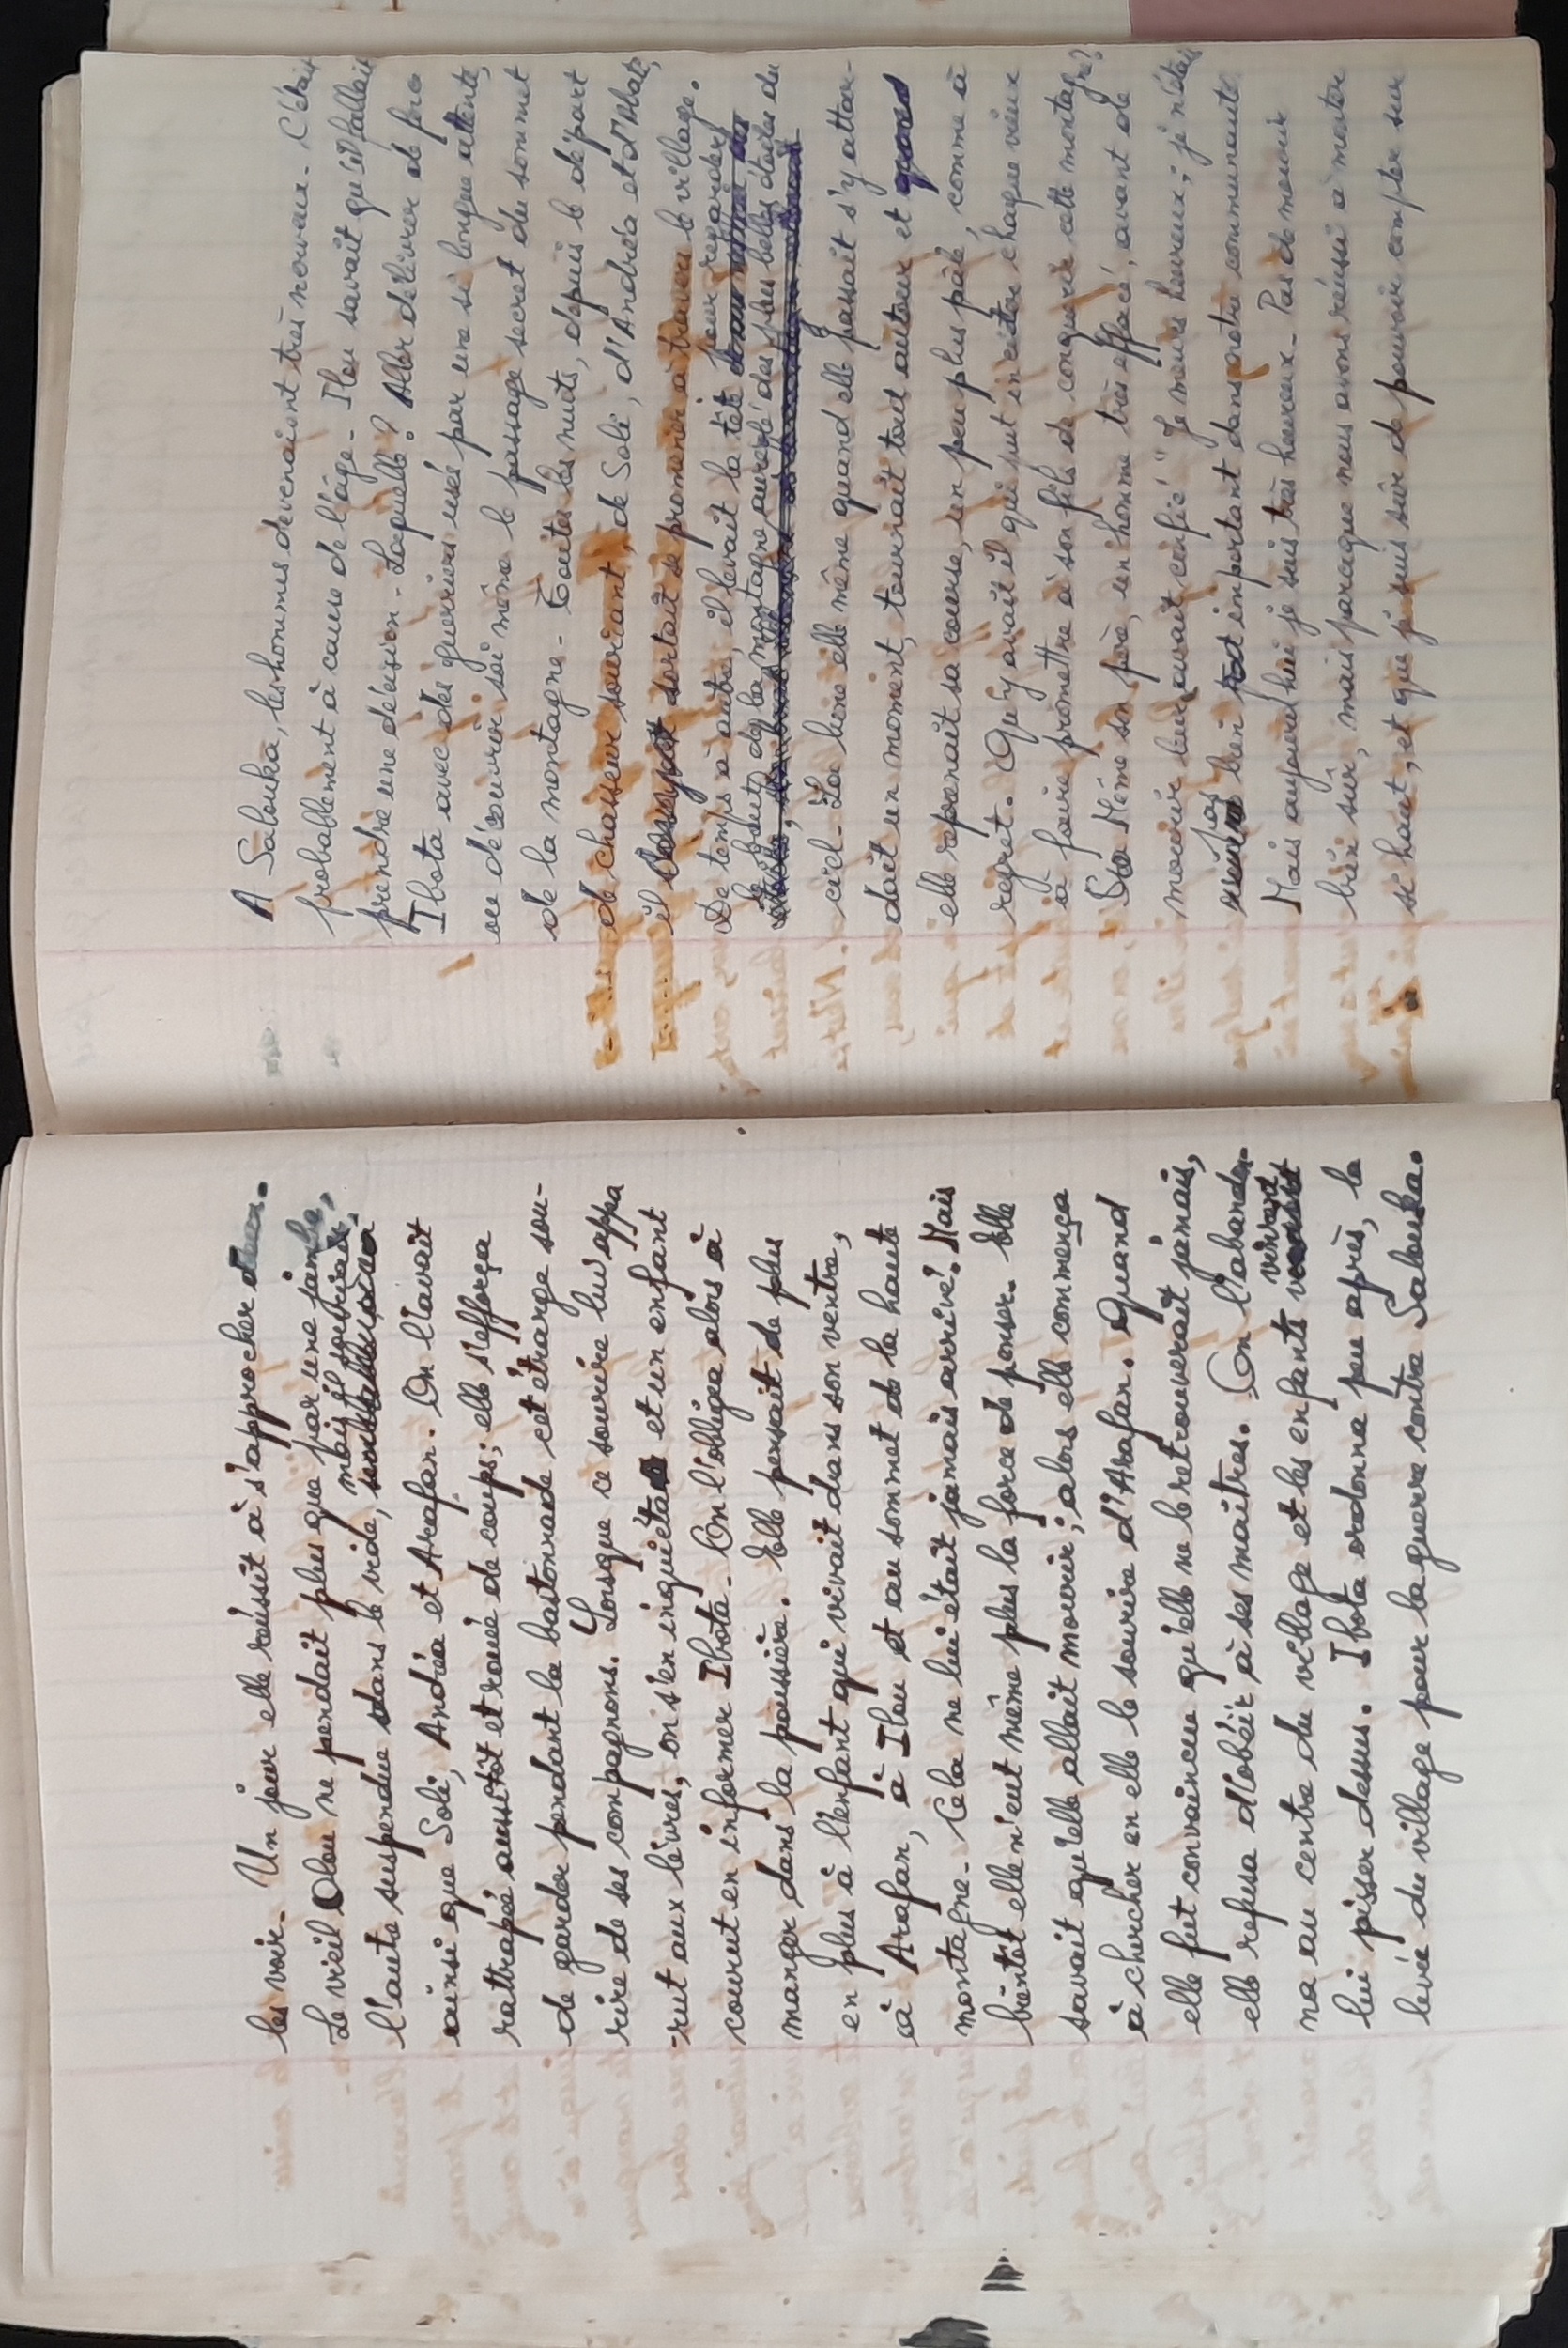 les voir. Un jour elle réussit à s'approcher d'eux.
Le vieil Olou ne pendait plus que par une jambe,
l'autre suspendue dans le vide, mais il souriait,
ainsi que Soli, Andréa et Arafan. On l'avait
rattrapée aussitôt et rouée de coups; elle s'efforça
de garder pendant la bastonnade cet étrange sou-
rire de ses compagnons. Lorsque ce sourire lui appa
-rut aux lèvres, on s'en inquiéta et un enfant
courut en informer Ibota. On l'obligea alors à
manger dans la poussière. Elle pensait de plus
en plus à l'enfant qui vivait dans son ventre,
à Arafan, à Ilou et au sommet de la haute
montagne. Cela ne lui était jamais arrivé. Mais
bientôt elle n'eut même plus la force de penser. Elle
savait qu'elle allait mourir; alors elle commença
à chercher en elle le sourire d'Arafan. Quand
elle fut convaincue qu'elle ne le retrouverait jamais,
elle refusa d'obéir à ses maîtres. On l'abandon-
na au centre du village et les enfants vinrent
lui pisser dessus. Ibota ordonna peu après, la
levée du village pour la guerre contre Salouka.
A Salouka, les hommes devenaient très nerveux. C'était
probablement à cause de l'âge. Ilou savait qu'il fallait
prendre une décision. Laquelle? Aller délivrer de force
Ibota avec des guerriers usés par une si longue attente,
ou découvrir soi même le passage secret du sommet
de la montagne. Toutes les nuits, depuis le départ
de chasseur souriant, de Soli, d'Andréa et d'Abats,
il sortait se promener à travers le village.
De temps à autre, il levait la tête pour regarder
le bout de la montagne auréolé des plus belles étoiles du
ciel. La lune elle même quand elle passait s'y attar-
dait un moment, tournait tout autour et quand
elle reprenait sa course, un peu plus pâle, comme à
regret. Qu'y avait il qui put inciter chaque vieux
à faire promettre à son fils de conquérir cette montagne?
Même son père, un homme très effacé, avant de
mourir lui avait confié " Je meurs heureux; je n'étais
pas bien important dans notre communauté.
Mais aujourd'hui je suis très heureux. Pas de mourir
bien sûr, mais parce que nous avons réussi à monter
si haut, et que je suis sûr de pouvoir compter sur